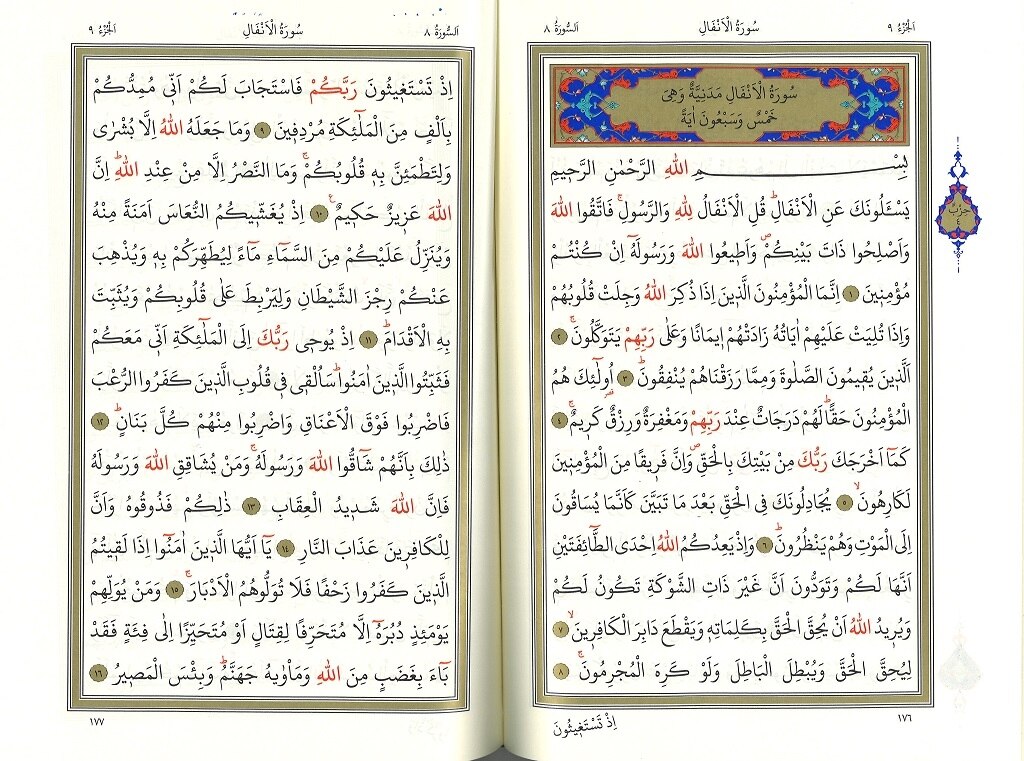 اَلْجُزْءُ ٩ سُورَةُ الْاَنْفَالِ اَلسُّورَةُ ٨
سُورَةُ الْاَنْفَالِ مَدَنِيَّةٌ وَهِيَ
خَمْسٌ وَسَبْعُونَ اٰيَةً
بِسْــــــمِ اللهِ الرَّحْمٰنِ الرَّحٖيمِ
يَسْـَٔلُونَكَ عَنِ الْاَنْفَالِؕ قُلِ الْاَنْفَالُ لِلّٰهِ وَالرَّسُولِۚ فَاتَّقُوا اللهَ
وَاَصْلِحُوا ذَاتَ بَيْنِكُمْࣕ وَاَطٖيعُوا اللهَ وَرَسُولَهُٓ اِنْ كُنْتُمْ
مُؤْمِنٖينَ ١ اِنَّمَا الْمُؤْمِنُونَ الَّذٖينَ اِذَا ذُكِرَ اللهُ وَجِلَتْ قُلُوبُهُمْ
وَاِذَا تُلِيَتْ عَلَيْهِمْ اٰيَاتُهُ زَادَتْهُمْ اٖيمَانًا وَعَلٰى رَبِّهِمْ يَتَوَكَّلُونَۚ ٢
اَلَّذٖينَ يُقٖيمُونَ الصَّلٰوةَ وَمِمَّا رَزَقْنَاهُمْ يُنْفِقُونَؕ ٣ اُو۬لٰٓئِكَ هُمُ
الْمُؤْمِنُونَ حَقًّاؕ لَهُمْ دَرَجَاتٌ عِنْدَ رَبِّهِمْ وَمَغْفِرَةٌ وَرِزْقٌ كَرٖيمٌۚ ٤
كَمَٓا اَخْرَجَكَ رَبُّكَ مِنْ بَيْتِكَ بِالْحَقِّࣕ وَاِنَّ فَرٖيقًا مِنَ الْمُؤْمِنٖينَ
لَكَارِهُونَۙ ٥ يُجَادِلُونَكَ فِي الْحَقِّ بَعْدَ مَا تَبَيَّنَ كَاَنَّمَا يُسَاقُونَ
اِلَى الْمَوْتِ وَهُمْ يَنْظُرُونَؕ ٦ وَاِذْ يَعِدُكُمُ اللهُ اِحْدَى الطَّٓائِفَتَيْنِ
اَنَّهَا لَكُمْ وَتَوَدُّونَ اَنَّ غَيْرَ ذَاتِ الشَّوْكَةِ تَكُونُ لَكُمْ
وَيُرٖيدُ اللهُ اَنْ يُحِقَّ الْحَقَّ بِكَلِمَاتِهٖ وَيَقْطَعَ دَابِرَ الْكَافِرٖينَۙ ٧
لِيُحِقَّ الْحَقَّ وَيُبْطِلَ الْبَاطِلَ وَلَوْ كَرِهَ الْمُجْرِمُونَۚ ٨
حِزْبٌ
٤
١٧٦
اِذْ تَسْتَغٖيثُونَ
اَلسُّورَةُ ٨ سُورَةُ الْاَنْفَالِ اَلْجُزْءُ ٩
اِذْ تَسْتَغٖيثُونَ رَبَّكُمْ فَاسْتَجَابَ لَكُمْ اَنّٖي مُمِدُّكُمْ
بِاَلْفٍ مِنَ الْمَلٰٓئِكَةِ مُرْدِفٖينَ ٩ وَمَا جَعَلَهُ اللهُ اِلَّا بُشْرٰى
وَلِتَطْمَئِنَّ بِهٖ قُلُوبُكُمْۚ وَمَا النَّصْرُ اِلَّا مِنْ عِنْدِ اللهِؕ اِنَّ
اللهَ عَزٖيزٌ حَكٖيمٌ۟ ١٠ اِذْ يُغَشّٖيكُمُ النُّعَاسَ اَمَنَةً مِنْهُ
وَيُنَزِّلُ عَلَيْكُمْ مِنَ السَّمَٓاءِ مَٓاءً لِيُطَهِّرَكُمْ بِهٖ وَيُذْهِبَ
عَنْكُمْ رِجْزَ الشَّيْطَانِ وَلِيَرْبِطَ عَلٰى قُلُوبِكُمْ وَيُثَبِّتَ
بِهِ الْاَقْدَامَؕ ١١ اِذْ يُوحٖي رَبُّكَ اِلَى الْمَلٰٓئِكَةِ اَنّٖي مَعَكُمْ
فَثَبِّتُوا الَّذٖينَ اٰمَنُواؕ سَاُلْقٖي فٖي قُلُوبِ الَّذٖينَ كَفَرُوا الرُّعْبَ
فَاضْرِبُوا فَوْقَ الْاَعْنَاقِ وَاضْرِبُوا مِنْهُمْ كُلَّ بَنَانٍؕ ١٢
ذٰلِكَ بِاَنَّهُمْ شَٓاقُّوا اللهَ وَرَسُولَهُۚ وَمَنْ يُشَاقِقِ اللهَ وَرَسُولَهُ
فَاِنَّ اللهَ شَدٖيدُ الْعِقَابِ ١٣ ذٰلِكُمْ فَذُوقُوهُ وَاَنَّ
لِلْكَافِرٖينَ عَذَابَ النَّارِ ١٤ يَٓا اَيُّهَا الَّذٖينَ اٰمَنُٓوا اِذَا لَقٖيتُمُ
الَّذٖينَ كَفَرُوا زَحْفًا فَلَا تُوَلُّوهُمُ الْاَدْبَارَۚ ١٥ وَمَنْ يُوَلِّهِمْ
يَوْمَئِذٍ دُبُرَهُٓ اِلَّا مُتَحَرِّفًا لِقِتَالٍ اَوْ مُتَحَيِّزًا اِلٰى فِئَةٍ فَقَدْ
بَٓاءَ بِغَضَبٍ مِنَ اللهِ وَمَأْوٰيهُ جَهَنَّمُؕ وَبِئْسَ الْمَصٖيرُ ١٦
١٧٧